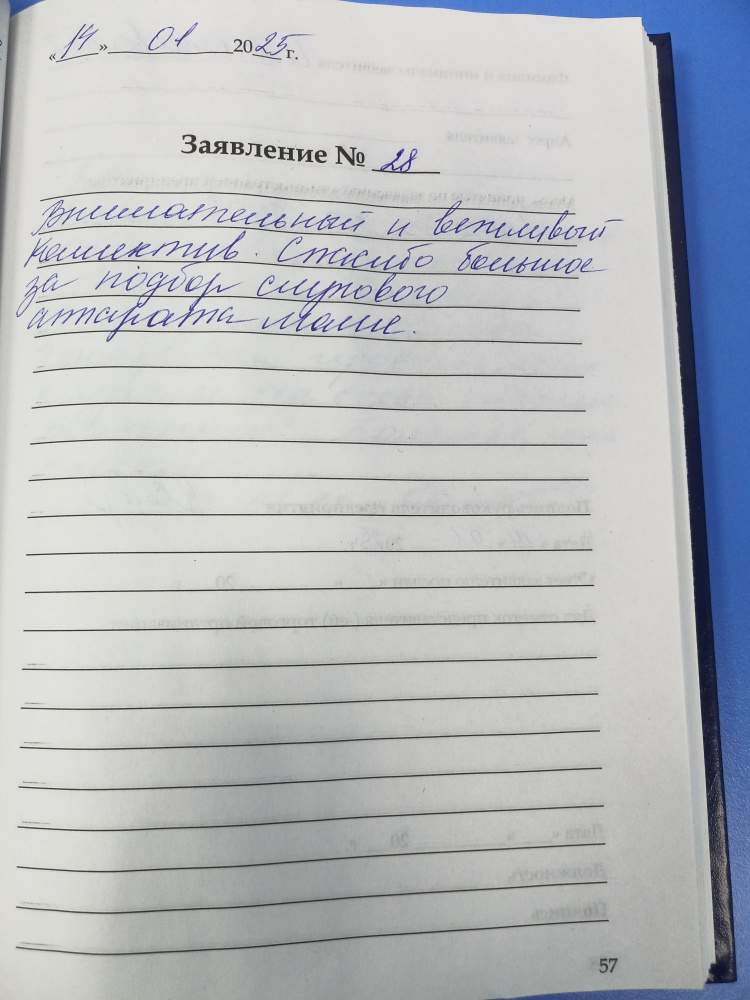 «14» 01 2025 г.
Заявление № 28
Внимательный и вежливый
коллектив. Спасибо большое
за подбор слухового
аппарата маме.
57